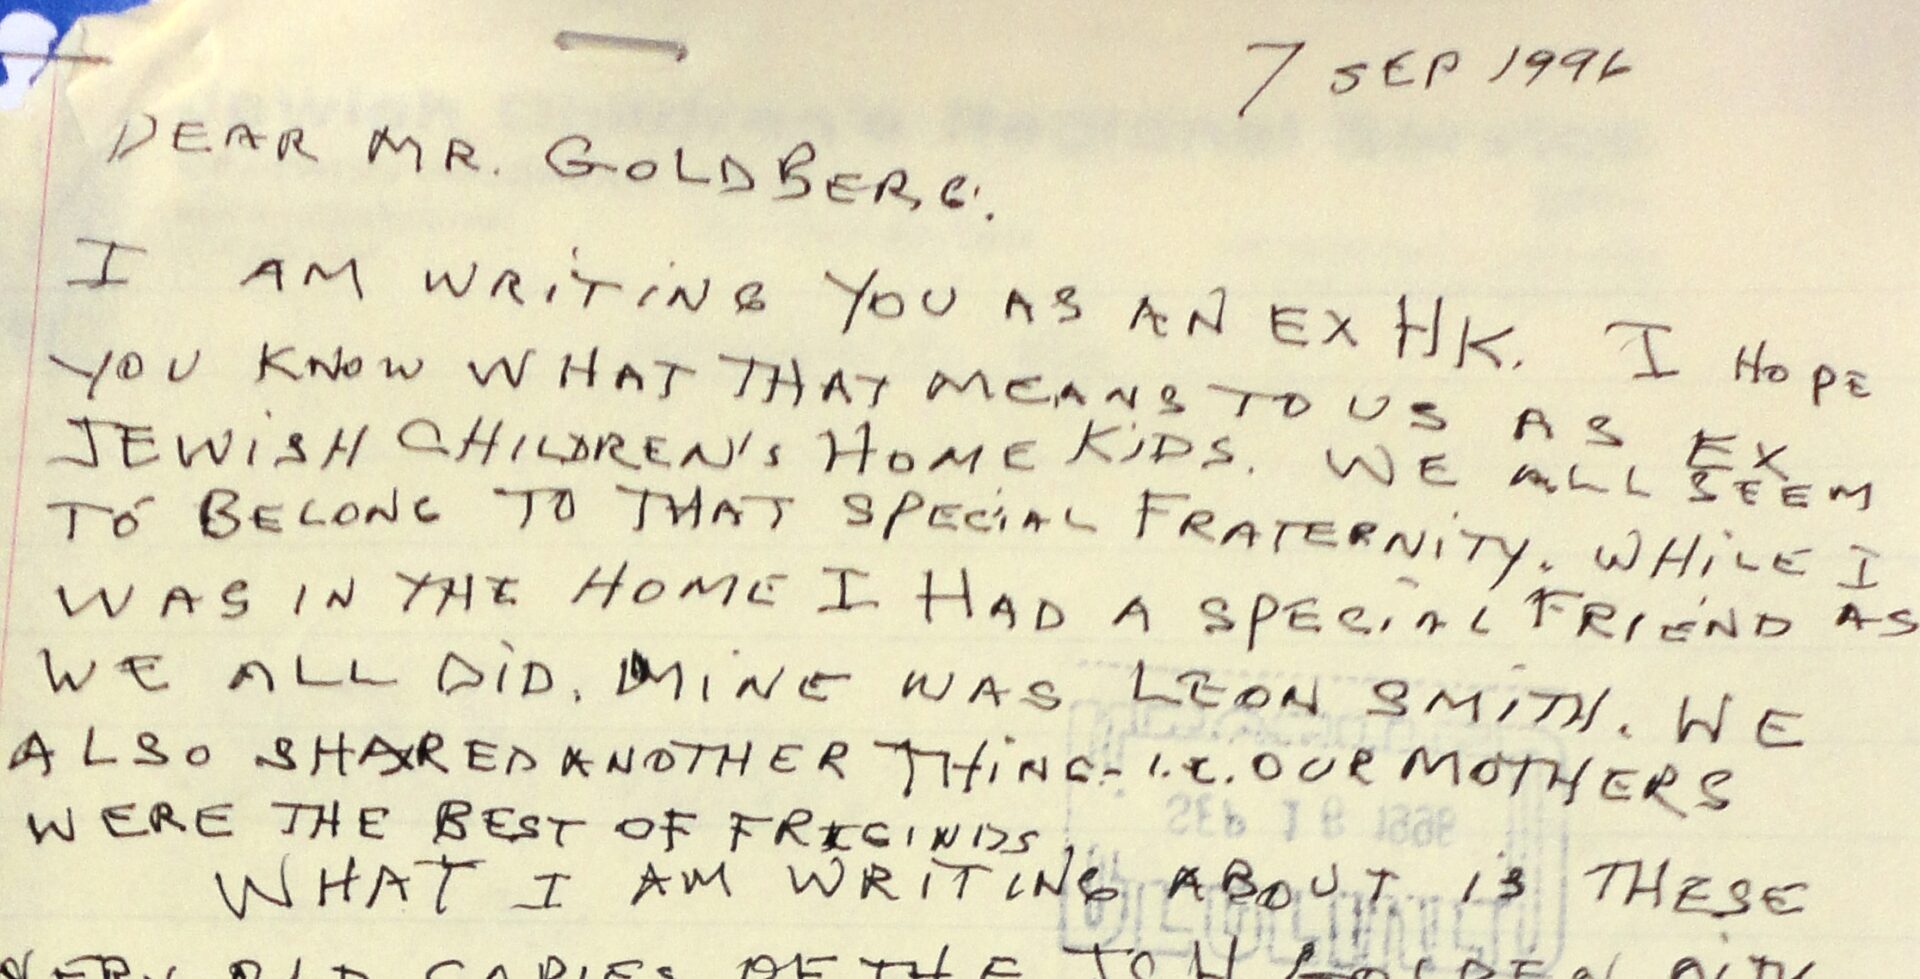 7 SEP 1996
DEAR MR. GOLDBERG.
I AM WRITING YOU AS AN EX HK. I HOPE
YOU KNOW WHAT THAT MEANS TO US AS EX
JEWISH CHILDREN'S HOME KIDS. WE ALL SEEM
TO BELONG TO THAT SPECIAL FRATERNITY. WHILE I
WAS IN THE HOME I HAD A SPECIAL FRIEND AS
WE ALL DID. MINE WAS LEON SMITH. WE
ALSO SHARED ANOTHER THING - i.e. OUR MOTHERS
WERE THE BEST OF
WHAT I AM WRITING ABOUT IS THESE
VERY OLD COPIES OF THE JCH GOLDEN CITY
SEP 18 1996